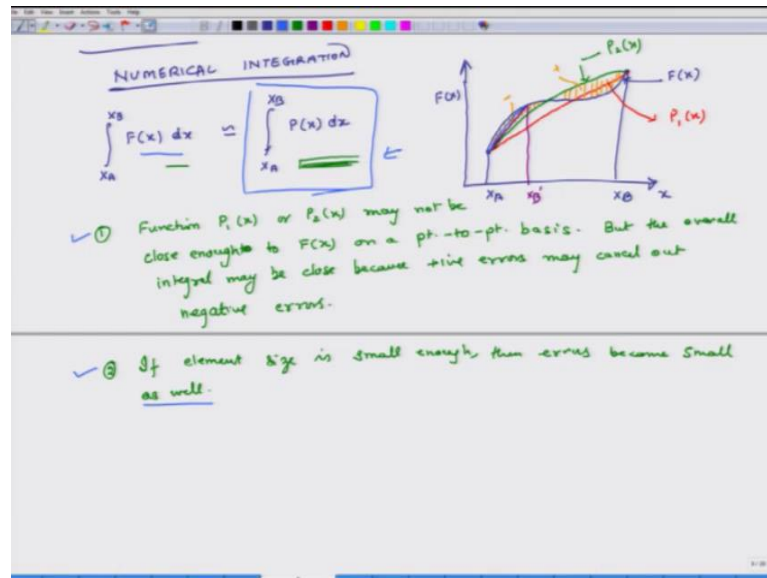 NUMERICAL INTEGRATION
∫ F(x) dx ≃ ∫ P(x) dx
XB
XA
XB
XA
F(x)
P₂(x)
F(x)
P₁(x)
XA
XB'
XB
x
① Function P₁(x) or P₂(x) may not be
close enough to F(x) on a pt.-to-pt. basis. But the overall
integral may be close because +ive errors may cancel out
negative errors.
② If element size is small enough, then errors become small
as well.